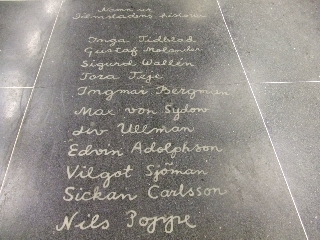 Namn ur
Filmstadens historia
Inga Tidblad
Gustaf Molander
Sigurd Wallén
Tora Teje
Ingmar Bergman
Max von Sydow
Liv Ullman
Edvin Adolphson
Vilgot Sjöman
Sickan Carlsson
Nils Poppe